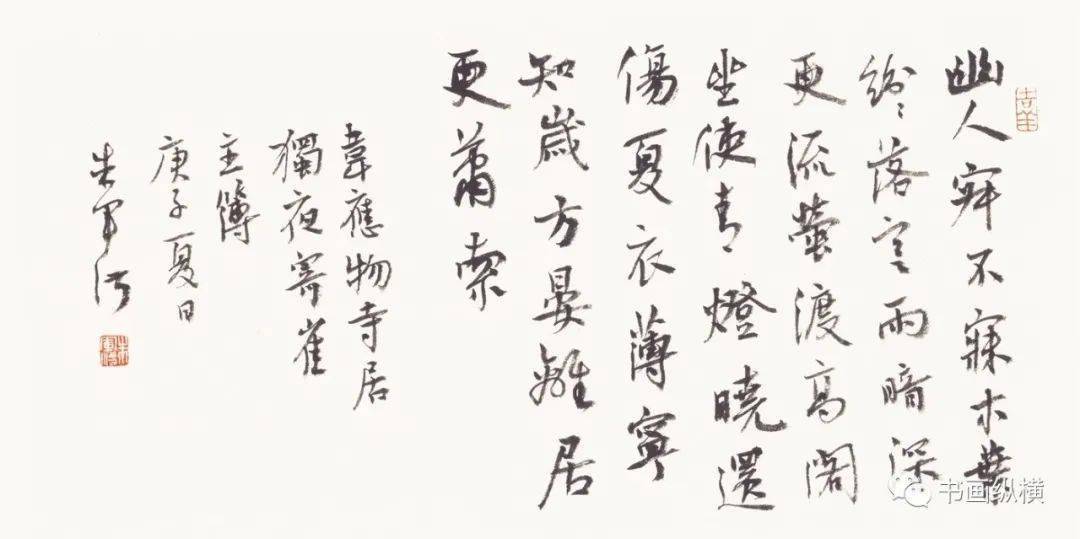 吉羊
幽人寂不寐木葉
紛〻落寒雨暗深
更流螢渡高閣
坐使青燈曉還
傷夏衣薄寧
知歲方晏離居
更蕭索
韋應物寺居
獨夜寄崔
主簿
庚子夏日
朱軍
书画纵横